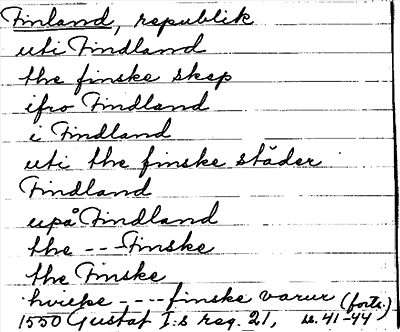 Finland, republik
uti Findland
the finske skep
ifro Findland
i Findland
uti the finske städer
Findland
upå Findland
the --- Finske
the Finske
hvicke ---- finske varur (forts.)
1550 Gustaf I:s reg. 21, s. 41-44